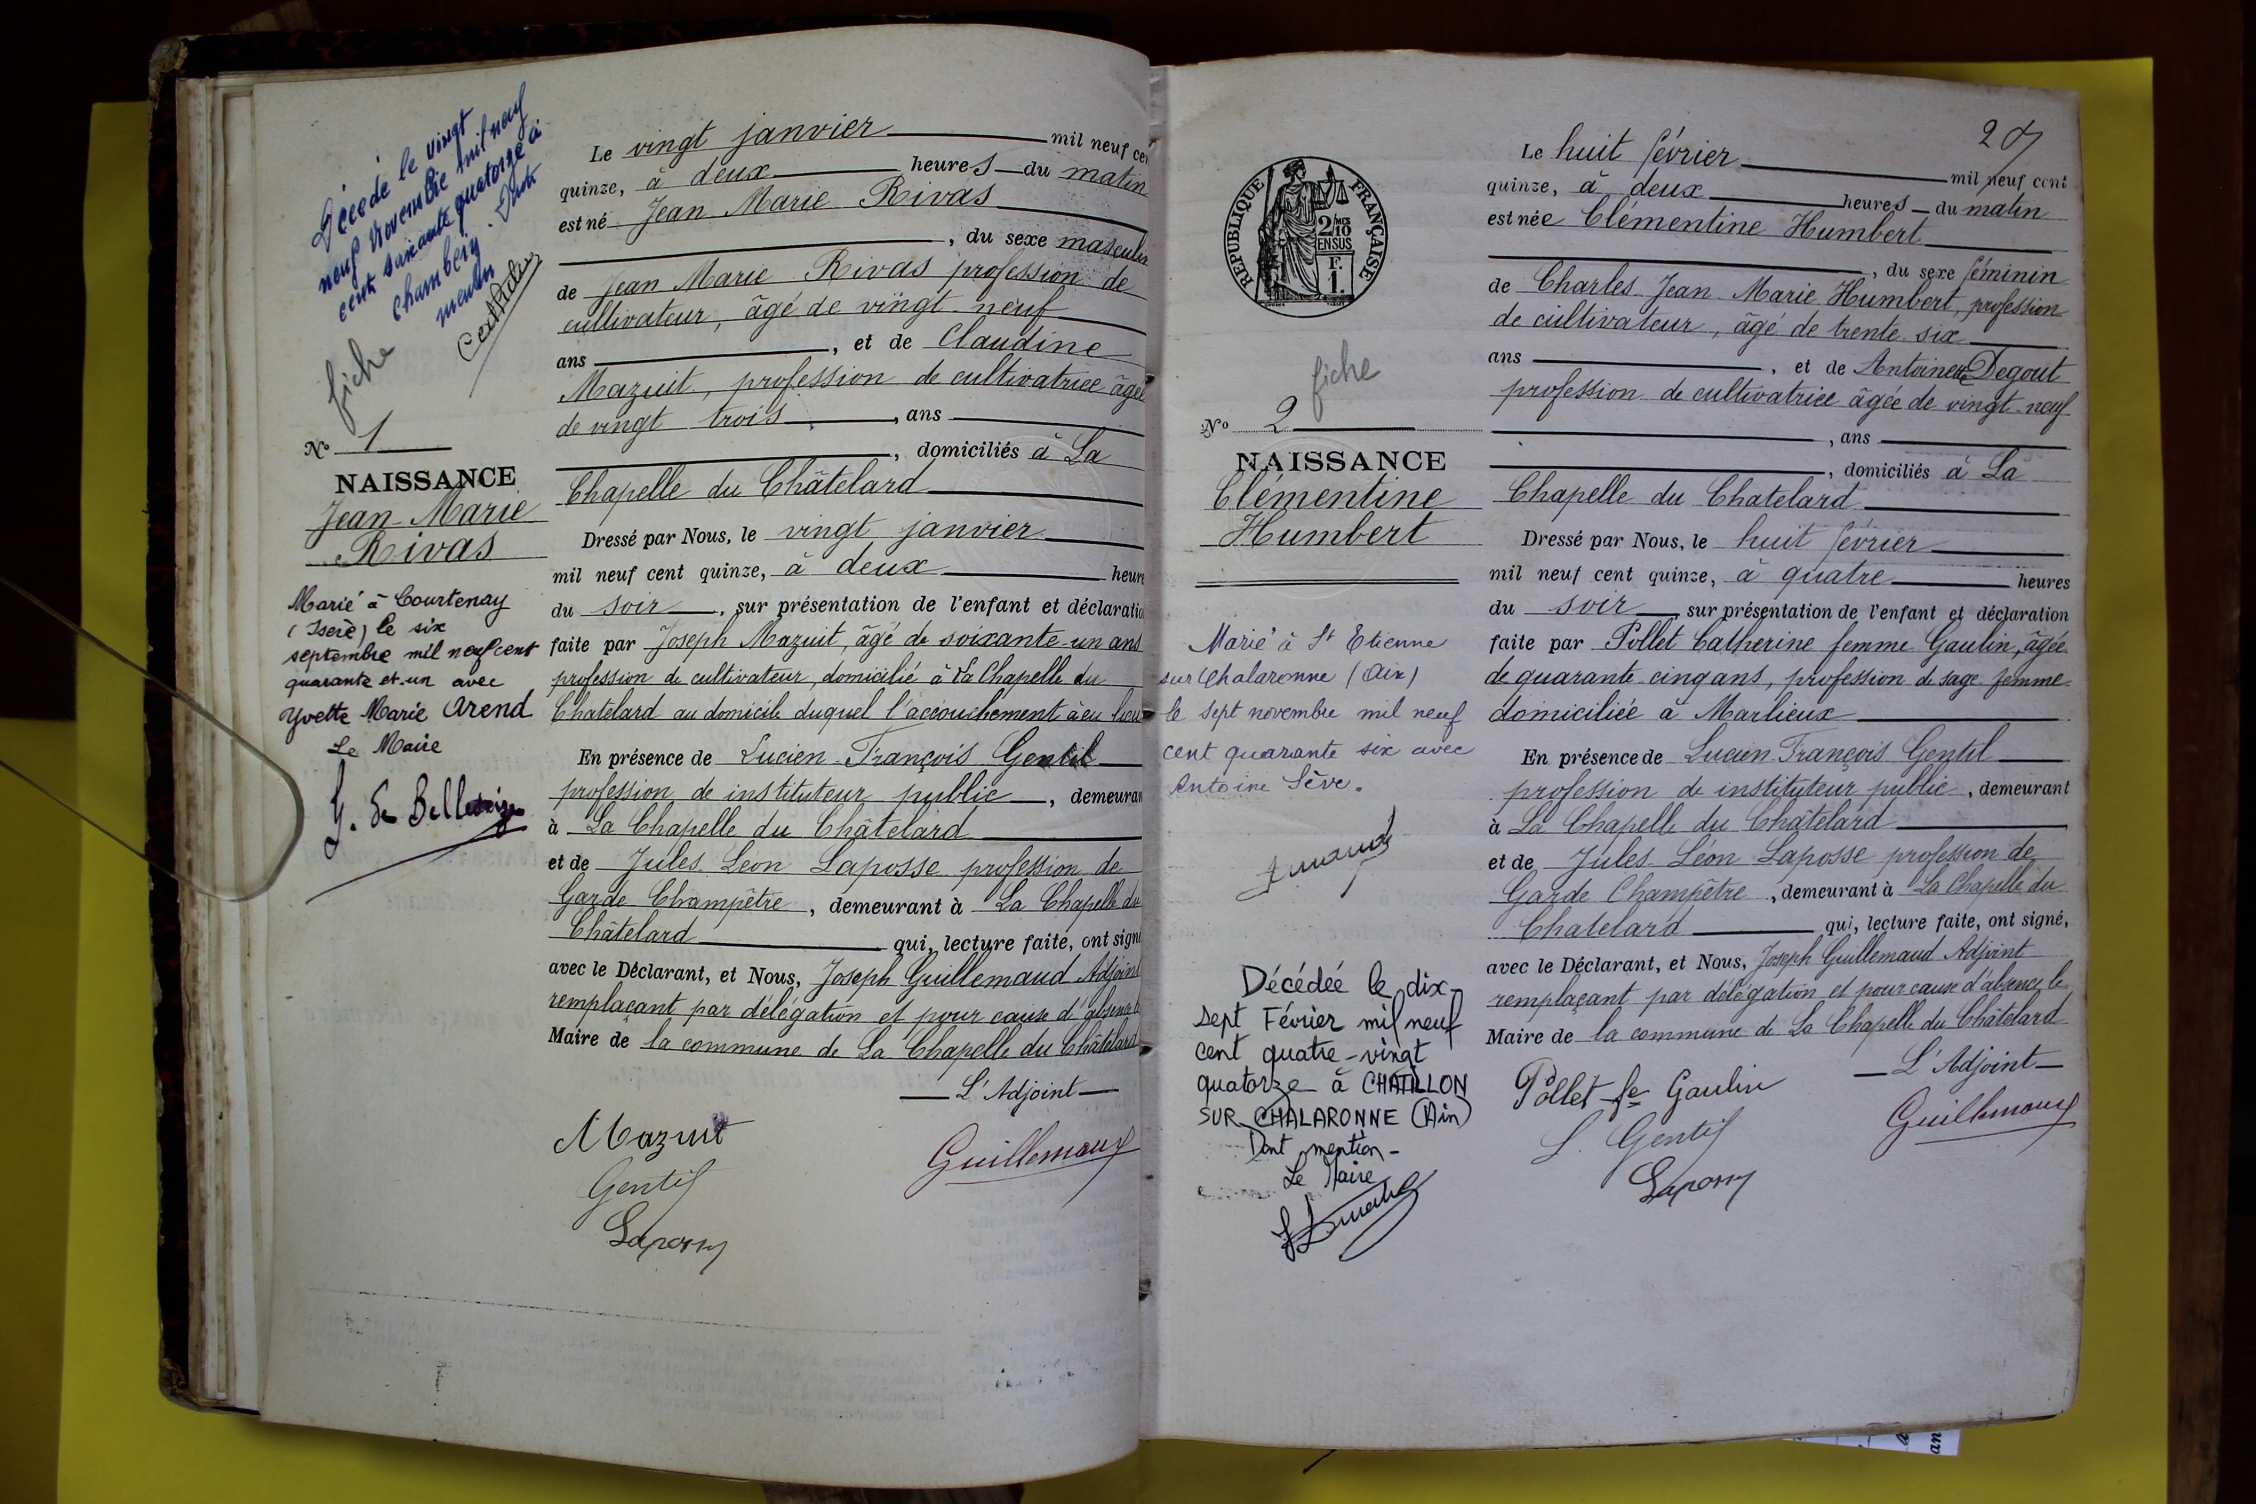 Décédé le vingt
neuf Novembre mil neuf
cent soixante quatorze à
Chambéry. Dont
mention
fiche
No 1
NAISSANCE
Jean Marie
Rivas
Marié à Courtenay
(Isère) le six
septembre mil neuf cent
quarante et un avec
Yvette Marie Arend
Le Maire
Le vingt janvier mil neuf cen
quinze, à deux heures du matin
est né Jean Marie Rivas
, du sexe masculin
de Jean Marie Rivas profession de
cultivateur, âgé de vingt neuf
ans , et de Claudine
Mazuit, profession de cultivatrice âgée
de vingt trois , ans
, domiciliés à La
Chapelle du Châtelard
Dressé par Nous, le vingt janvier
mil neuf cent quinze, à deux heure
du soir , sur présentation de l'enfant et déclaratio
faite par Joseph Mazuit, âgé de soixante un ans
profession de cultivateur, domicilié à La Chapelle du
Chatelard au domicile duquel l'accouchement à eu lieu
En présence de Lucien François Gentil
profession de instituteur public , demeuran
à La Chapelle du Châtelard
et de Jules Léon Laposse profession de
Garde Champêtre , demeurant à La Chapelle du
Châtelard qui, lecture faite, ont signé
avec le Déclarant, et Nous, Joseph Guillemaud Adjoint
remplaçant par délégation et pour cause d'absence le
Maire de la commune de La Chapelle du Châtelard
L'Adjoint
Mazuit
Guillemaud
Gentil
REPUBLIQUE FRANÇAISE
2/10
EN SUS
F.
1.
fiche
No 2
NAISSANCE
Clémentine
Humbert
Marié à St Etienne
sur Chalaronne (Ain)
le sept novembre mil neuf
cent quarante six avec
Antoine Sève.
Décédée le dix-
sept Février mil neuf
cent quatre-vingt
quatorze à CHATILLON
SUR CHALARONNE (Ain)
Dont mention-
Le Maire
Le huit février mil neuf cent
quinze, à deux heures du matin
est née Clémentine Humbert
, du sexe féminin
de Charles Jean Marie Humbert, profession
de cultivateur, âgé de trente six
ans , et de Antoinette Degout
profession de cultivatrice âgée de vingt neuf
, ans
, domiciliés à La
Chapelle du Chatelard
Dressé par Nous, le huit février
mil neuf cent quinze, à quatre heures
du soir sur présentation de l'enfant et déclaration
faite par Pollet Catherine femme Gaulin, âgée
de quarante cinq ans, profession de sage femme
domiciliée à Marlieux
En présence de Lucien François Gentil
profession de instituteur public , demeurant
à La Chapelle du Châtelard
et de Jules Léon Laposse profession de
Garde Champêtre , demeurant à La Chapelle du
Chatelard qui, lecture faite, ont signé,
avec le Déclarant, et Nous, Joseph Guillemaud Adjoint
remplaçant par délégation et pour cause d'absence le
Maire de la commune de La Chapelle du Châtelard
L'Adjoint
Pollet fe Gaulin
Guillemaud
L. Gentil